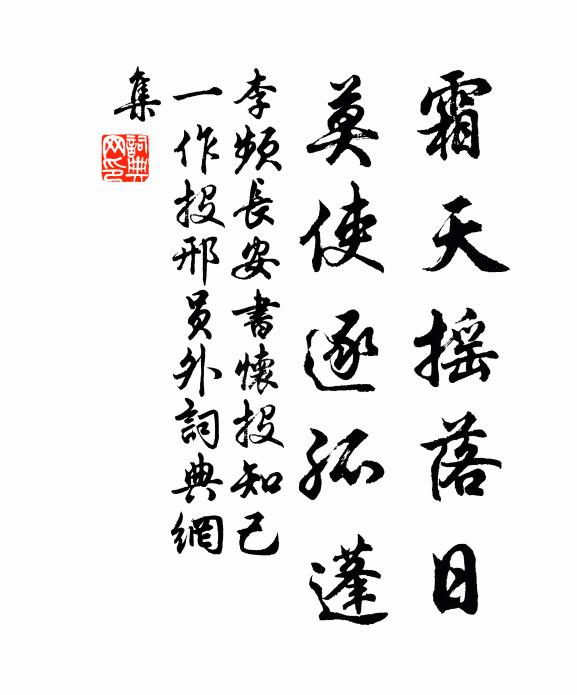 霜天摇落日
莫使逐孤蓬
李频長安書懷投知己
一作投邢員外詞典網
集
詞典网印